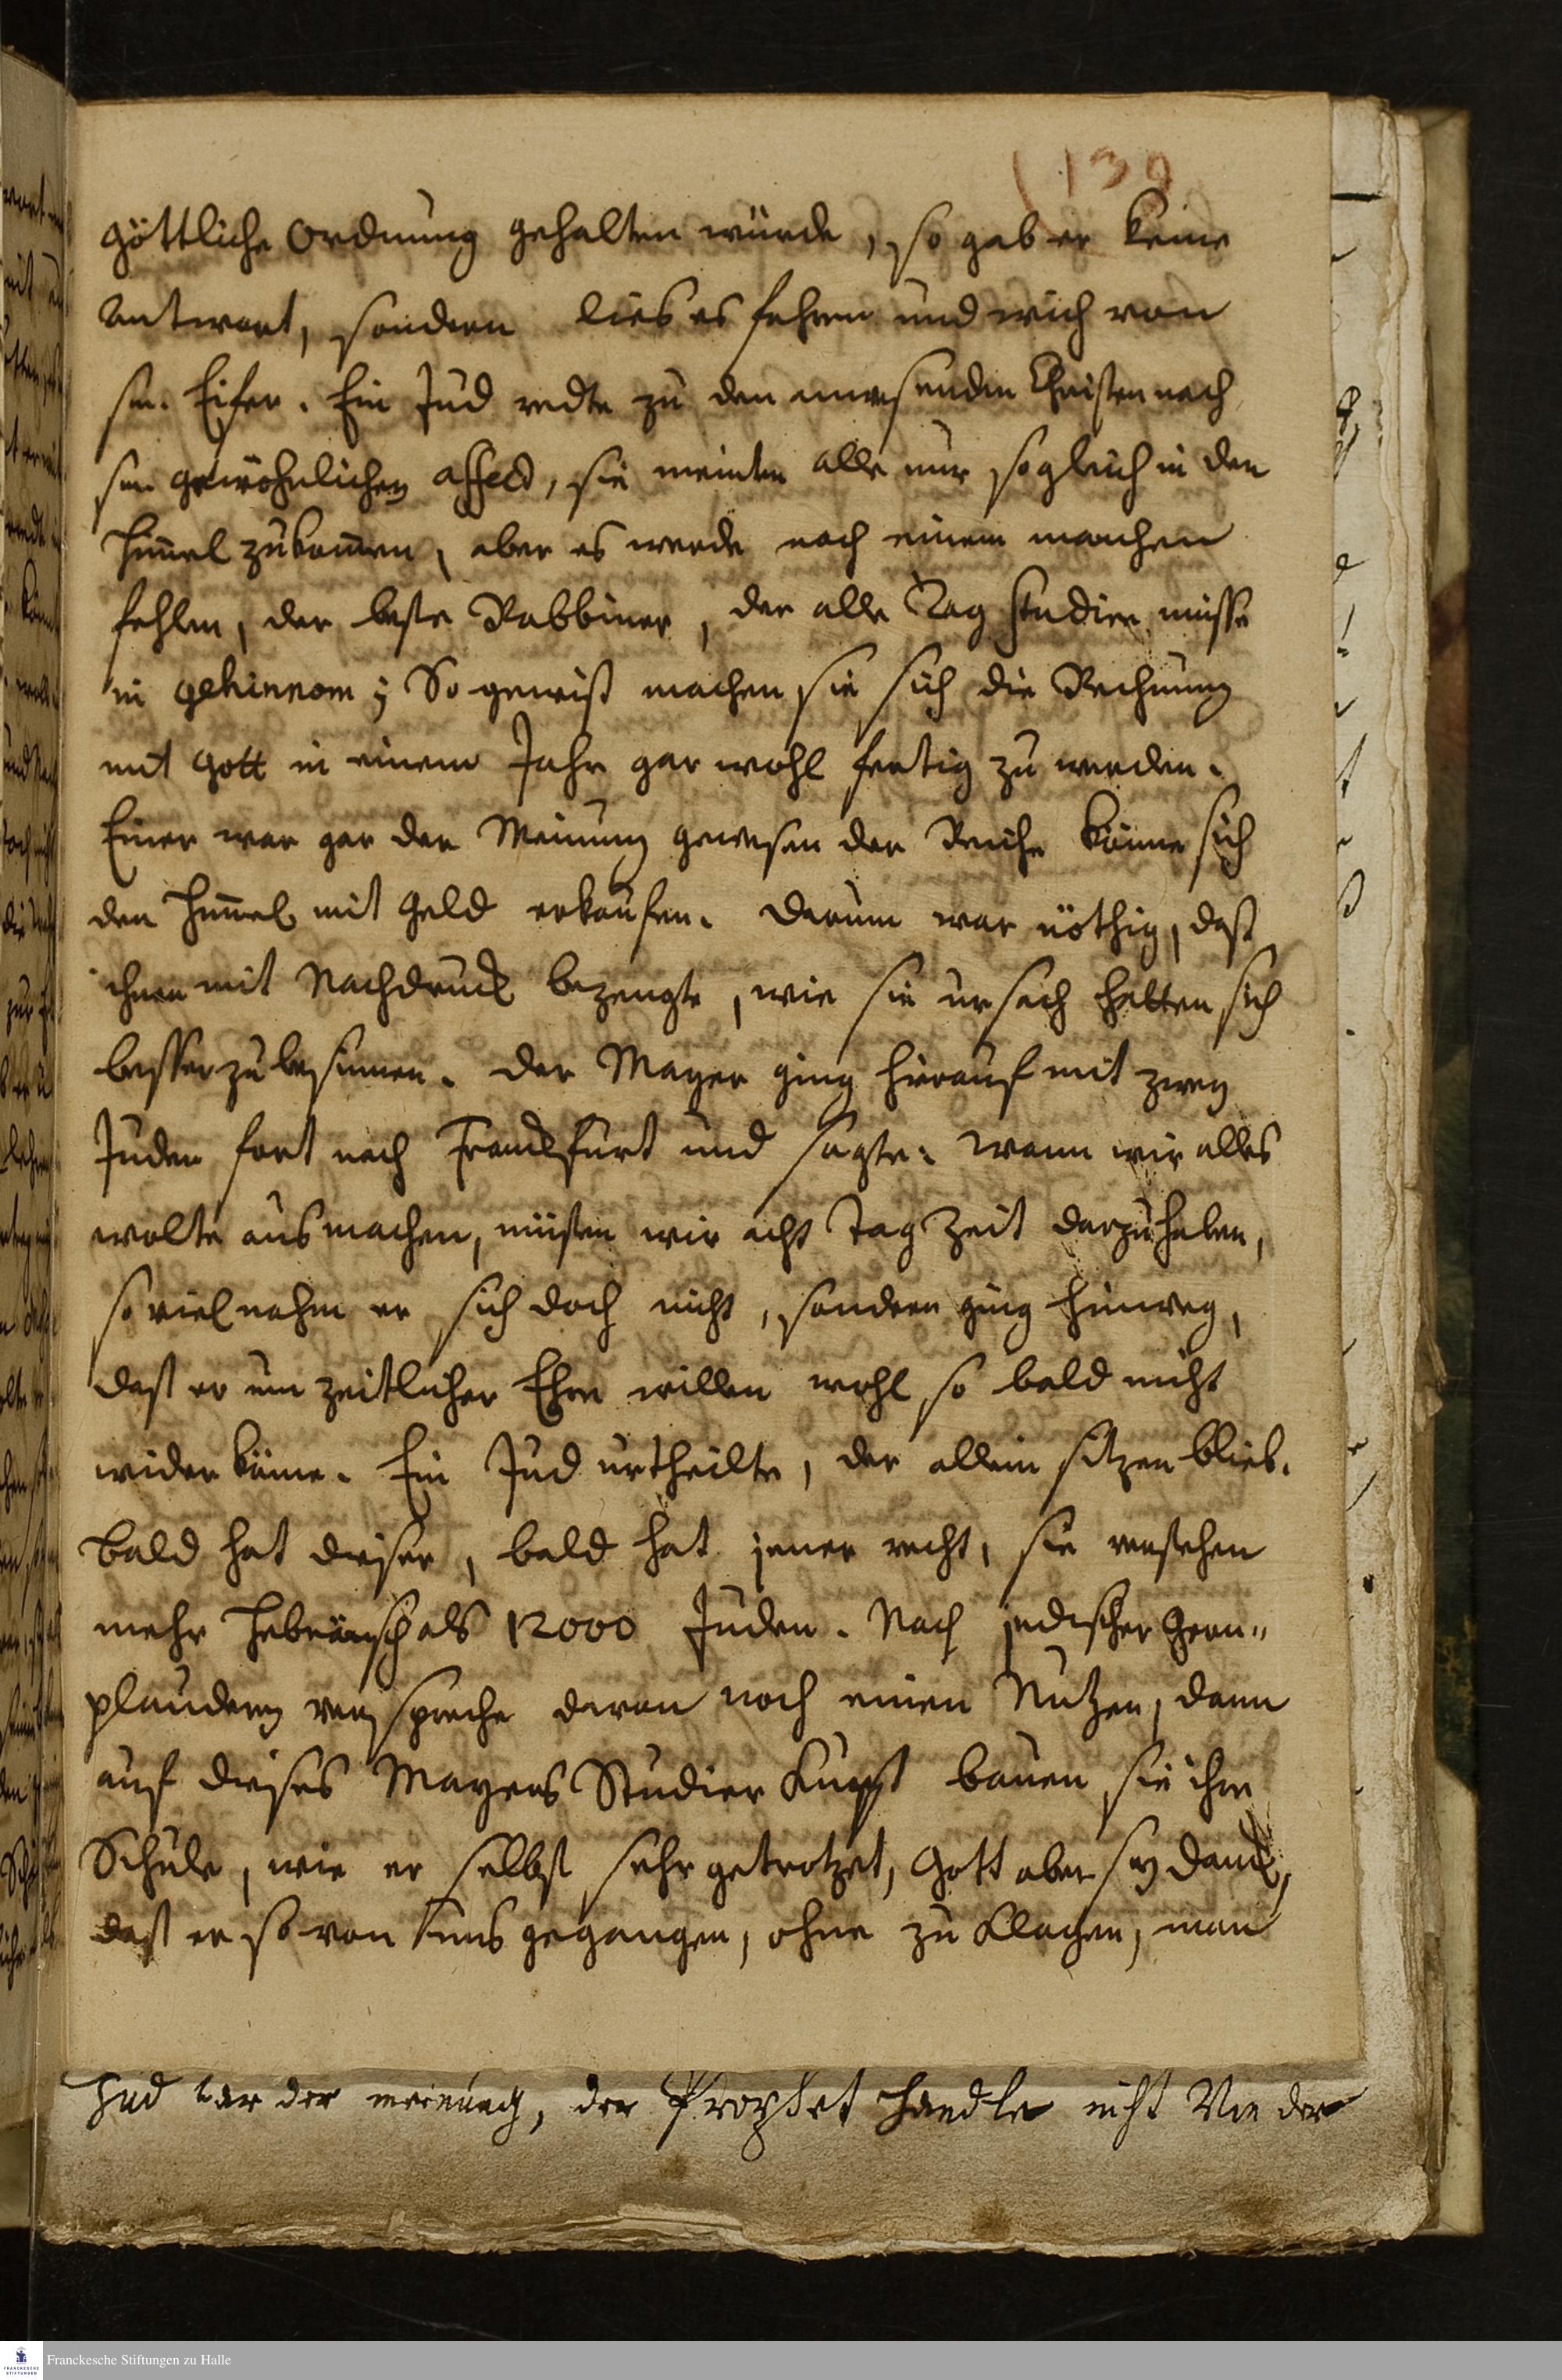 (139
göttliche Ordnung gehalten würde, so gab er keine
Antwort, sondern lies es fahren und wich von
sm. Eifer. Ein Jud redte zu den anwesenden Christen nach
sm. gewöhnlichen affect, sie meinten alle nur sogleich in den
Himel zukomen, aber es werde noch einem manchen
fehlen, der beste Rabbiner, der alle Tag studier, müsse
in gehinnom; So gewiß machen sie sich die Rechnung
mit Gott in einem Jahr gar wohl fertig zu werden.
Einer war gar der Meinung gewesen der Reiche könne sich
den Himel mit Geld erkaufen. Darum war nöthig, daß
ihnen mit Nachdruck bezeugte, wie sie ursach hetten sich
besser zu besinnen. Der Mayer ging hierauf mit zwey
Juden fort nach Franckfurt und sagte: wann wir alles
wolte ausmachen, müsten wir acht Tag Zeit darzu haben,
so viel nahm er sich doch nicht, sondern ging hinweg,
daß er um zeitlicher Ehre willen wohl so bald nicht
wider käme. Ein Jud urtheilte, der allein sitzen blieb.
bald hat dieser, bald hat jener recht, sie verstehen
mehr Hebräisch als 12000 Juden. Nach jedischer
plaudern verspreche davon noch einen Nutzen, dann
auf dieses Mayers Studier Kunst bauen sie ihre
Schule, wie er selbst sehr getrotzet, Gott aber sey danck,
daß er so von uns gegangen, ohne zu klagen, man
Jud war der meinung, der Prophet handle nicht Von der
Franckesche Stiftungen zu Halle
FRANCKESCHE
STIFTUNGEN